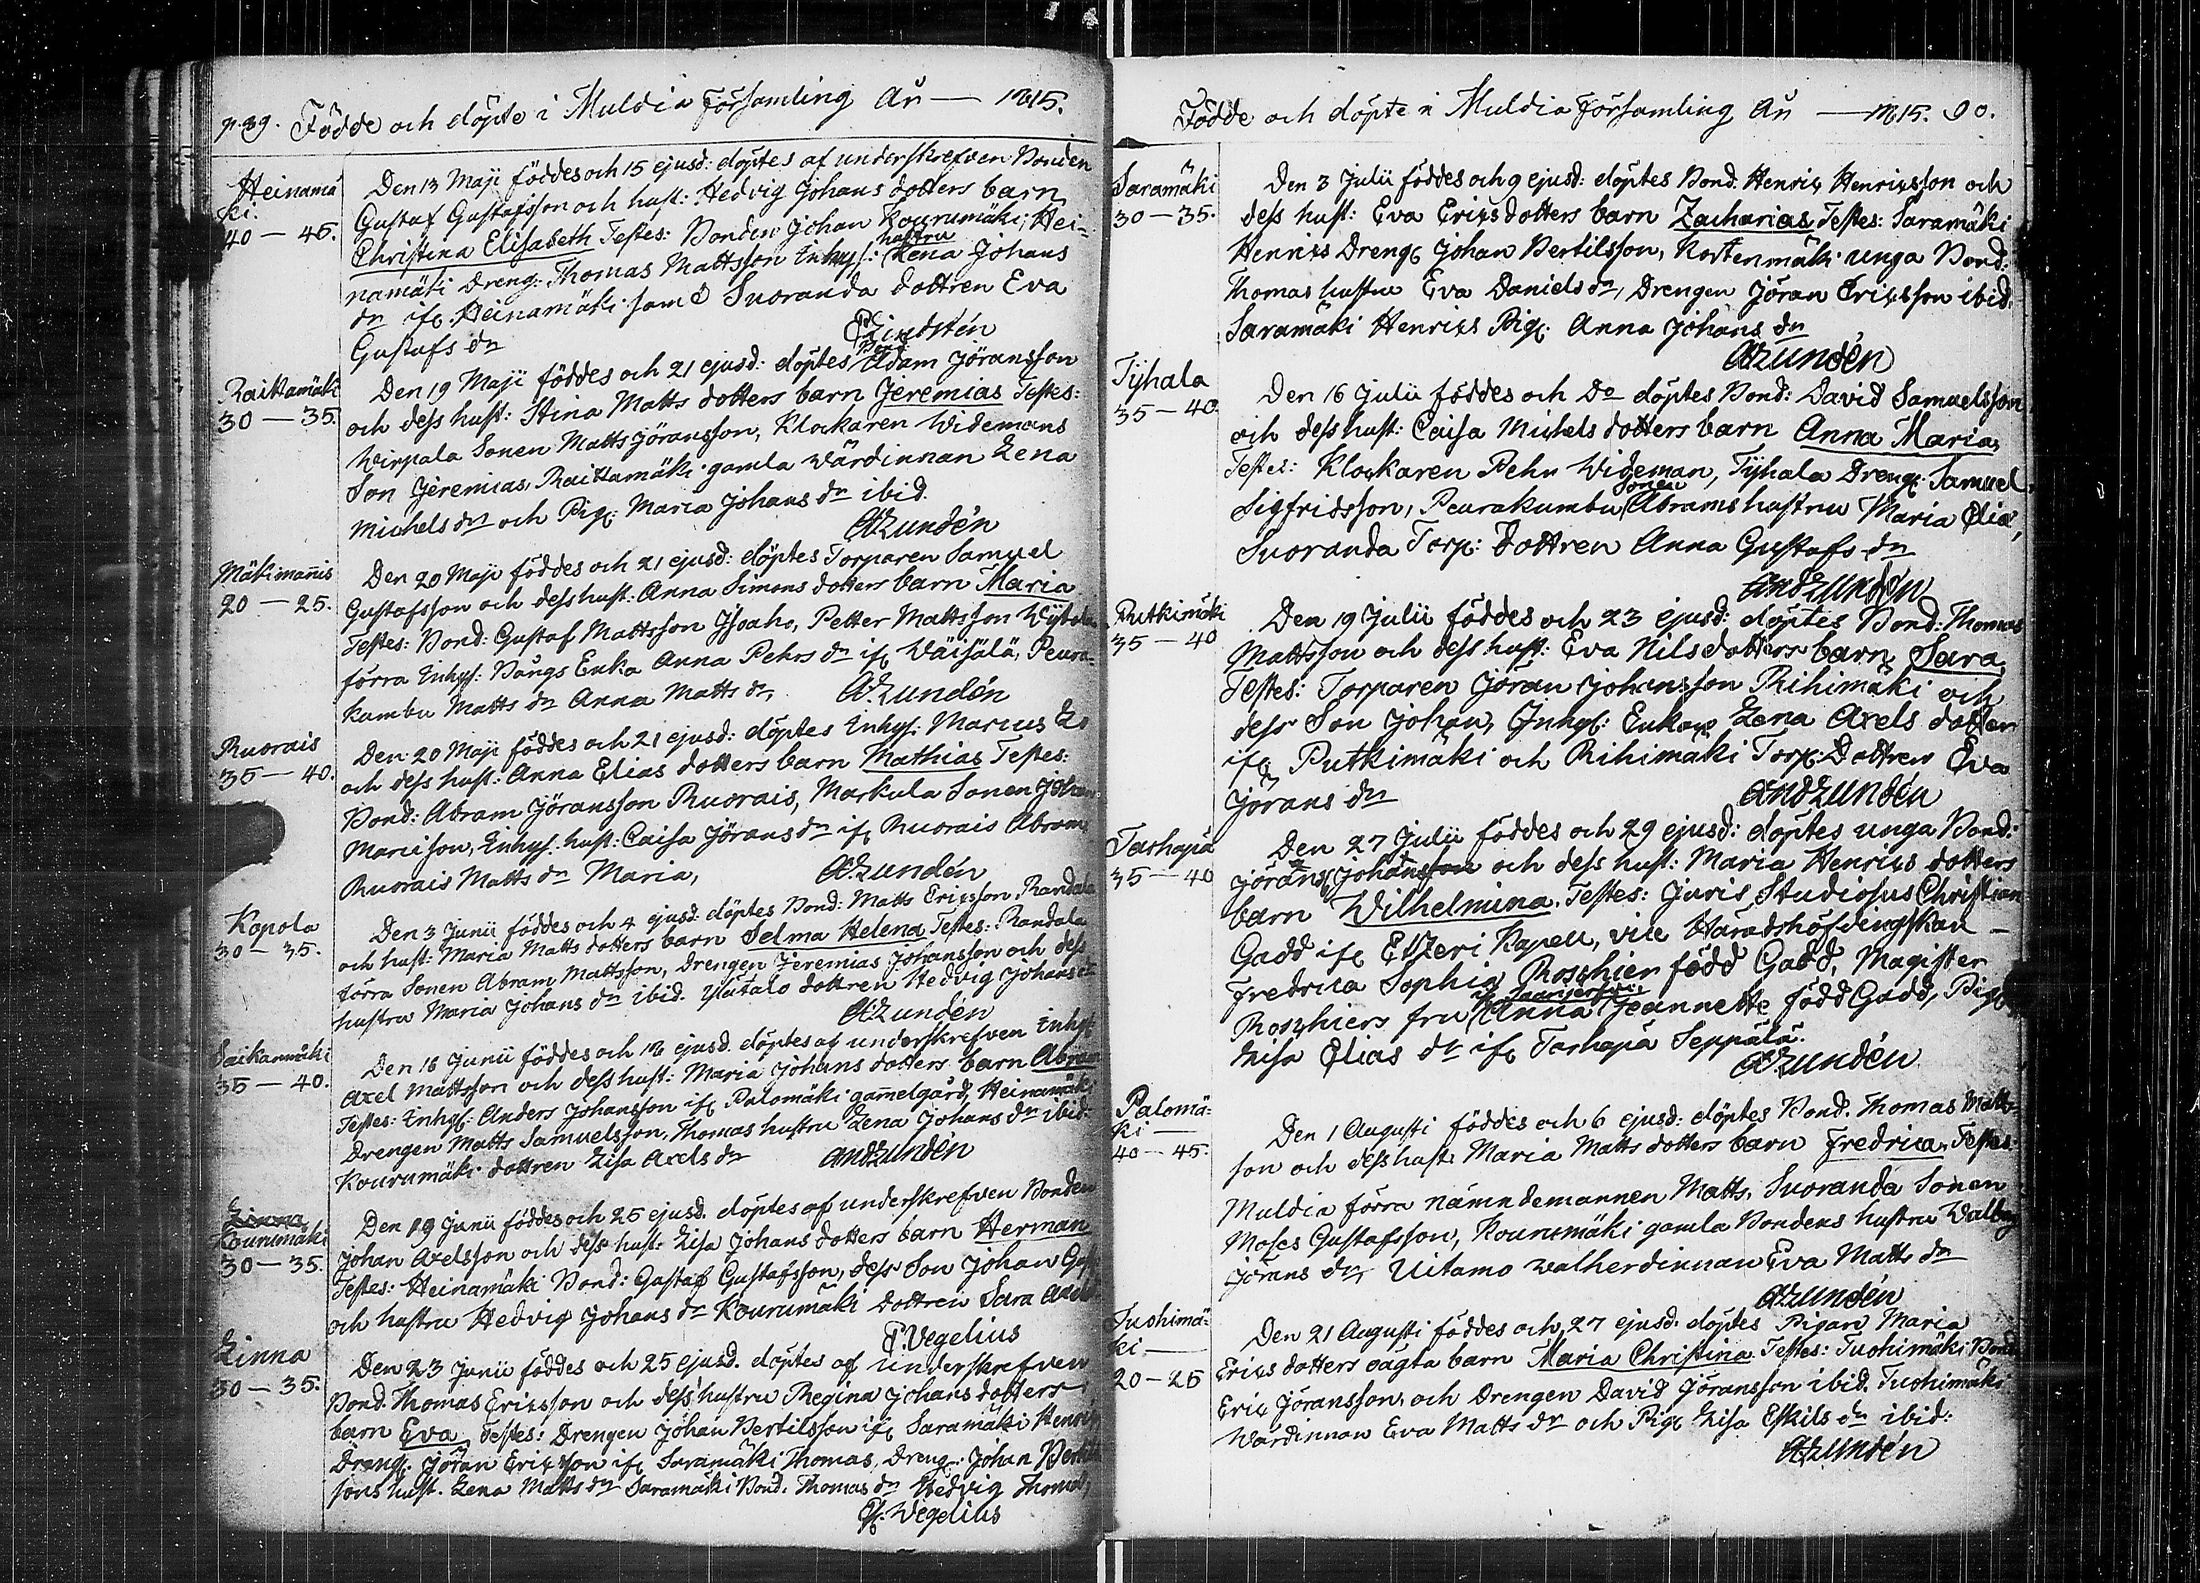 p. 89. Födde och döpte i Muldia Församling År — 1815.
Heinamä
ki.
40 — 45.
Den 13 Maji föddes och 15 ejusd: döptes af underskrefven Bonden
Gustaf Gustafsson och hust: Hedvig Johans dotters barn
Christina Elisabeth Testes: Bonden Johan Kourumäki, Hei-
namäki Dreng: Thomas Mattsson Inhys: hustru Lena Johans
dr ifr. Heinamäki samt Suoranda dottren Eva
Gustafs dr
Lindstén
Raittamäki
30 — 35.
Den 19 Maji föddes och 21 ejusd: döptes Bond: Adam Jöransson
och dess hust: Stina Matts dotters barn Jeremias Testes:
Wirpala Sonen Matts Jöransson, Klockaren Widemans
Son Jeremias, Raittamäki gamla wärdinnan Lena
Michels dr och Pig: Maria Johans dr ibid.
A Lundén
Mäkimannis
20 — 25.
Den 20 Maji föddes och 21 ejusd: döptes Torparen Samuel
Gustafsson och dess hust: Anna Simons dotters barn Maria
Testes: Bond: Gustaf Mattsson Isoaho, Petter Mattsson
förra Inhys: Bångs Enka Anna Pehrs dr ifr Wäisälä, Peura-
kumbu Matts dr Anna Matts dr,
A Lundén
Ruorais
35 — 40.
Den 20 Maji föddes och 21 ejusd: döptes Inhys: Marcus
och dess hust: Anna Elias dotters barn Mathias Testes:
Bond: Abram Jöransson Ruorais, Markula Sonen Johan
Marcison, Inhys. hust: Caisa Jörans dr ifr Ruorais Abram
Ruorais Matts dr Maria,
A Lundén
Kopola
30 — 35.
Den 3 Junii föddes och 4 ejusd: döptes Bond: Matts Ericsson Randala
och hust: Maria Matts dotters barn Selma Helena Testes: Randala
förra Sonen Abram Mattsson, Drengen Jeremias Johansson och dess
hustru Maria Johans dr ibid. Ylitalo dottren Hedvig Johans dr
A Lundén
Saikanmäki
35 — 40.
Den 16 Junii föddes och 18 ejusd. döptes af underskrefven Inhys:
Axel Mattsson och dess hust: Maria Johans dotters barn Abram
Testes: Inhys: Anders Johansson ifr Palomäki gamelgård, Heinamäki
Drengen Matts Samuelsson, Thomas hustru Lena Johans dr ibid:
Kourumäki dottren Lisa Axels dr
And Lundén
Linna
Kourumäki
30 — 35.
Den 19 Junii föddes och 25 ejusd. döptes af underskrefven Bonden
Johan Axelsson och dess hust: Lisa Johans dotters barn Herman
Testes: Heinamäki Bond: Gustaf Gustafsson, dess Son Johan
och hustru Hedvig Johans dr Kourumäki dottren Sara
Wegelius
Linna
30 — 35.
Den 23 Junii föddes och 25 ejusd. döptes af underskrefven
Bond. Thomas Ericsson och dess hustru Regina Johans dotters
barn Eva Testes: Drengen Johan Bertilsson ifr Saramäki
Dreng. Jöran Ericsson ifr Saramäki Thomas, Dreng: Johan
sons hust. Lena Matts dr Saramäki Bond. Thomas dr Hedvig
Wegelius
Födde och döpte i Muldia Församling År — 1815. 90.
Saramäki
30 — 35.
Den 3 Julii föddes och 9 ejusd: döptes Bond: Henric Henricsson och
dess hust: Eva Erics dotters barn Zacharias Testes: Saramäki
Henrics Dreng Johan Bertilsson, Kortenmäki unga Bond:
Thomas hustru Eva Daniels dr, Drengen Jöran Ericsson ibid.
Saramäki Henrics Pig: Anna Johans dr
A Lundén
Tyhala
35 — 40.
Den 16 Julii föddes och Do döptes Bond: David Samuelsson
och dess hust: Caisa Michels dotters barn Anna Maria,
Testes: Klockaren Pehr Wideman, Tyhala Dreng: Samuel
Sigfridsson, Peurakumbu Sonen Abrams hustru Maria Eliæ,
Suoranda Torp: dottren Anna Gustafs dr
And Lundén
Putkimäki
35 — 40
Den 19 Julii föddes och 23 ejusd: döptes Bond: Thomas
Mattsson och dess hust: Eva Nils dotters barn Sara
Testes: Torparen Jöran Johansson Rihimäki och
dess Son Johan, Inhys: Enkan Lena Axels dotter
ifr Putkimäki och Rihimäki Torp: Dottren Eva
Jörans dr
And Lundén
Tarhapä
35 — 40
Den 27 Julii föddes och 29 ejusd: döptes unga Bond:
Jörans Johansson och dess hust: Maria Henrics dotters
barn Wilhelmina. Testes: Juris Studiosus Christian
Gadd ifr Etzeri Kapell, vice Häradshöfdingskan —
Fredrica Sophia Roschier född Gadd, Magister
Roschiers fru Anna Jeannette född Gadd, Pig:
Lisa Elias dr ifr Tarhapä Seppälä.
A Lundén
Palomä-
ki —
40 — 45.
Den 1 Augusti föddes och 6 ejusd: döptes Bond. Thomas Matts-
son och dess hust. Maria Matts dotters barn Fredrica, Testes:
Muldia förra nämndemannen Matts, Suoranda Sonen
Moses Gustafsson, Kourumäki gamla Bondens hustru Walborg
Jörans dr, Uitamo walherdinnan Eva Matts dr
A Lundén
Tuohimä-
ki —
20 — 25
Den 21 Augusti föddes och 27 ejusd. döptes Pigan Maria
Erics dotters oägta barn Maria Christina. Testes: Tuohimäki Bond
Eric Jöransson, och Drengen David Jöransson ibid. Tuohimäki
Wärdinnan Eva Matts dr och Pig: Lisa Eskils dr ibid:
A Lundén